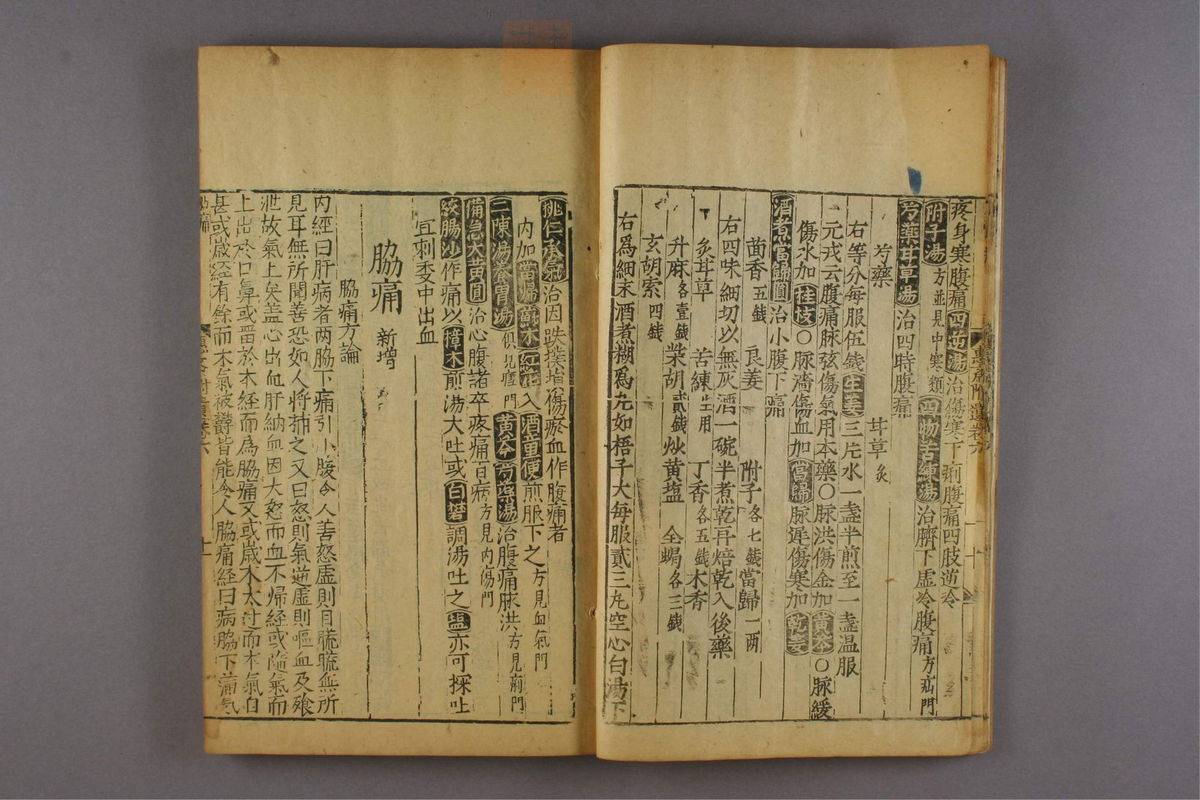 疼身寒腹痛四逆湯治傷寒下痢腹痛四肢逆冷
附子湯方並見中寒類四物苦練湯治臍下虚冷腹痛方疝門
芍藥甘草湯治四時腹痛
芍藥 甘草炙
右等分每服伍錢生姜三片水一盞半煎至一盞温服
元戎云腹痛脉弦傷氣用本藥〇脉洪傷金加黄芩〇脉緩
傷水加桂枝〇脉濇傷血加當歸脉遲傷寒加乾姜
酒煮當歸圓治小腹下痛
茴香五錢 良姜 附子各七錢 當歸一两
右四味細切以無灰酒一碗半煮乾再焙乾入後藥
炙甘草 苦練生用 丁香各五錢 木香
升麻各壹錢 柴胡貳錢 炒黄塩 全蝎各三錢
玄胡索四錢
右為細末酒煮糊為丸如梧子大每服貳三丸空心白湯下
桃仁承氣治因跌撲損傷瘀血作腹痛者
内加當歸蘇木紅花入酒童便煎服下之方見血氣門
二陳湯 胃湯俱見 門黄芩芍藥湯治腹痛脉洪方見痢門
備急大黄圓治心腹諸卒疼痛百病方見内傷門
絞腸沙作痛以樟木煎湯大吐或白礬調湯吐之塩亦可探吐
宜刺委中出血
脇痛 新增
脇痛方論
内經曰肝病者两脇下痛引小腹令人善怒虚則目䀮䀮無所
見耳無所聞善恐如人將捕之又曰怒則氣逆虚則嘔血及飱
泄故氣上矣盖心出血肝納血因大怒而血不帰經或隨氣而
上出於口鼻或畱於本經而為脇痛又或歲木太过而木氣自
甚或歲金有餘而木氣被欝皆能令人脇痛經曰病脇下滿氣